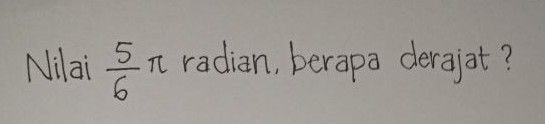 Nilai 5/6 π radian, berapa derajat?